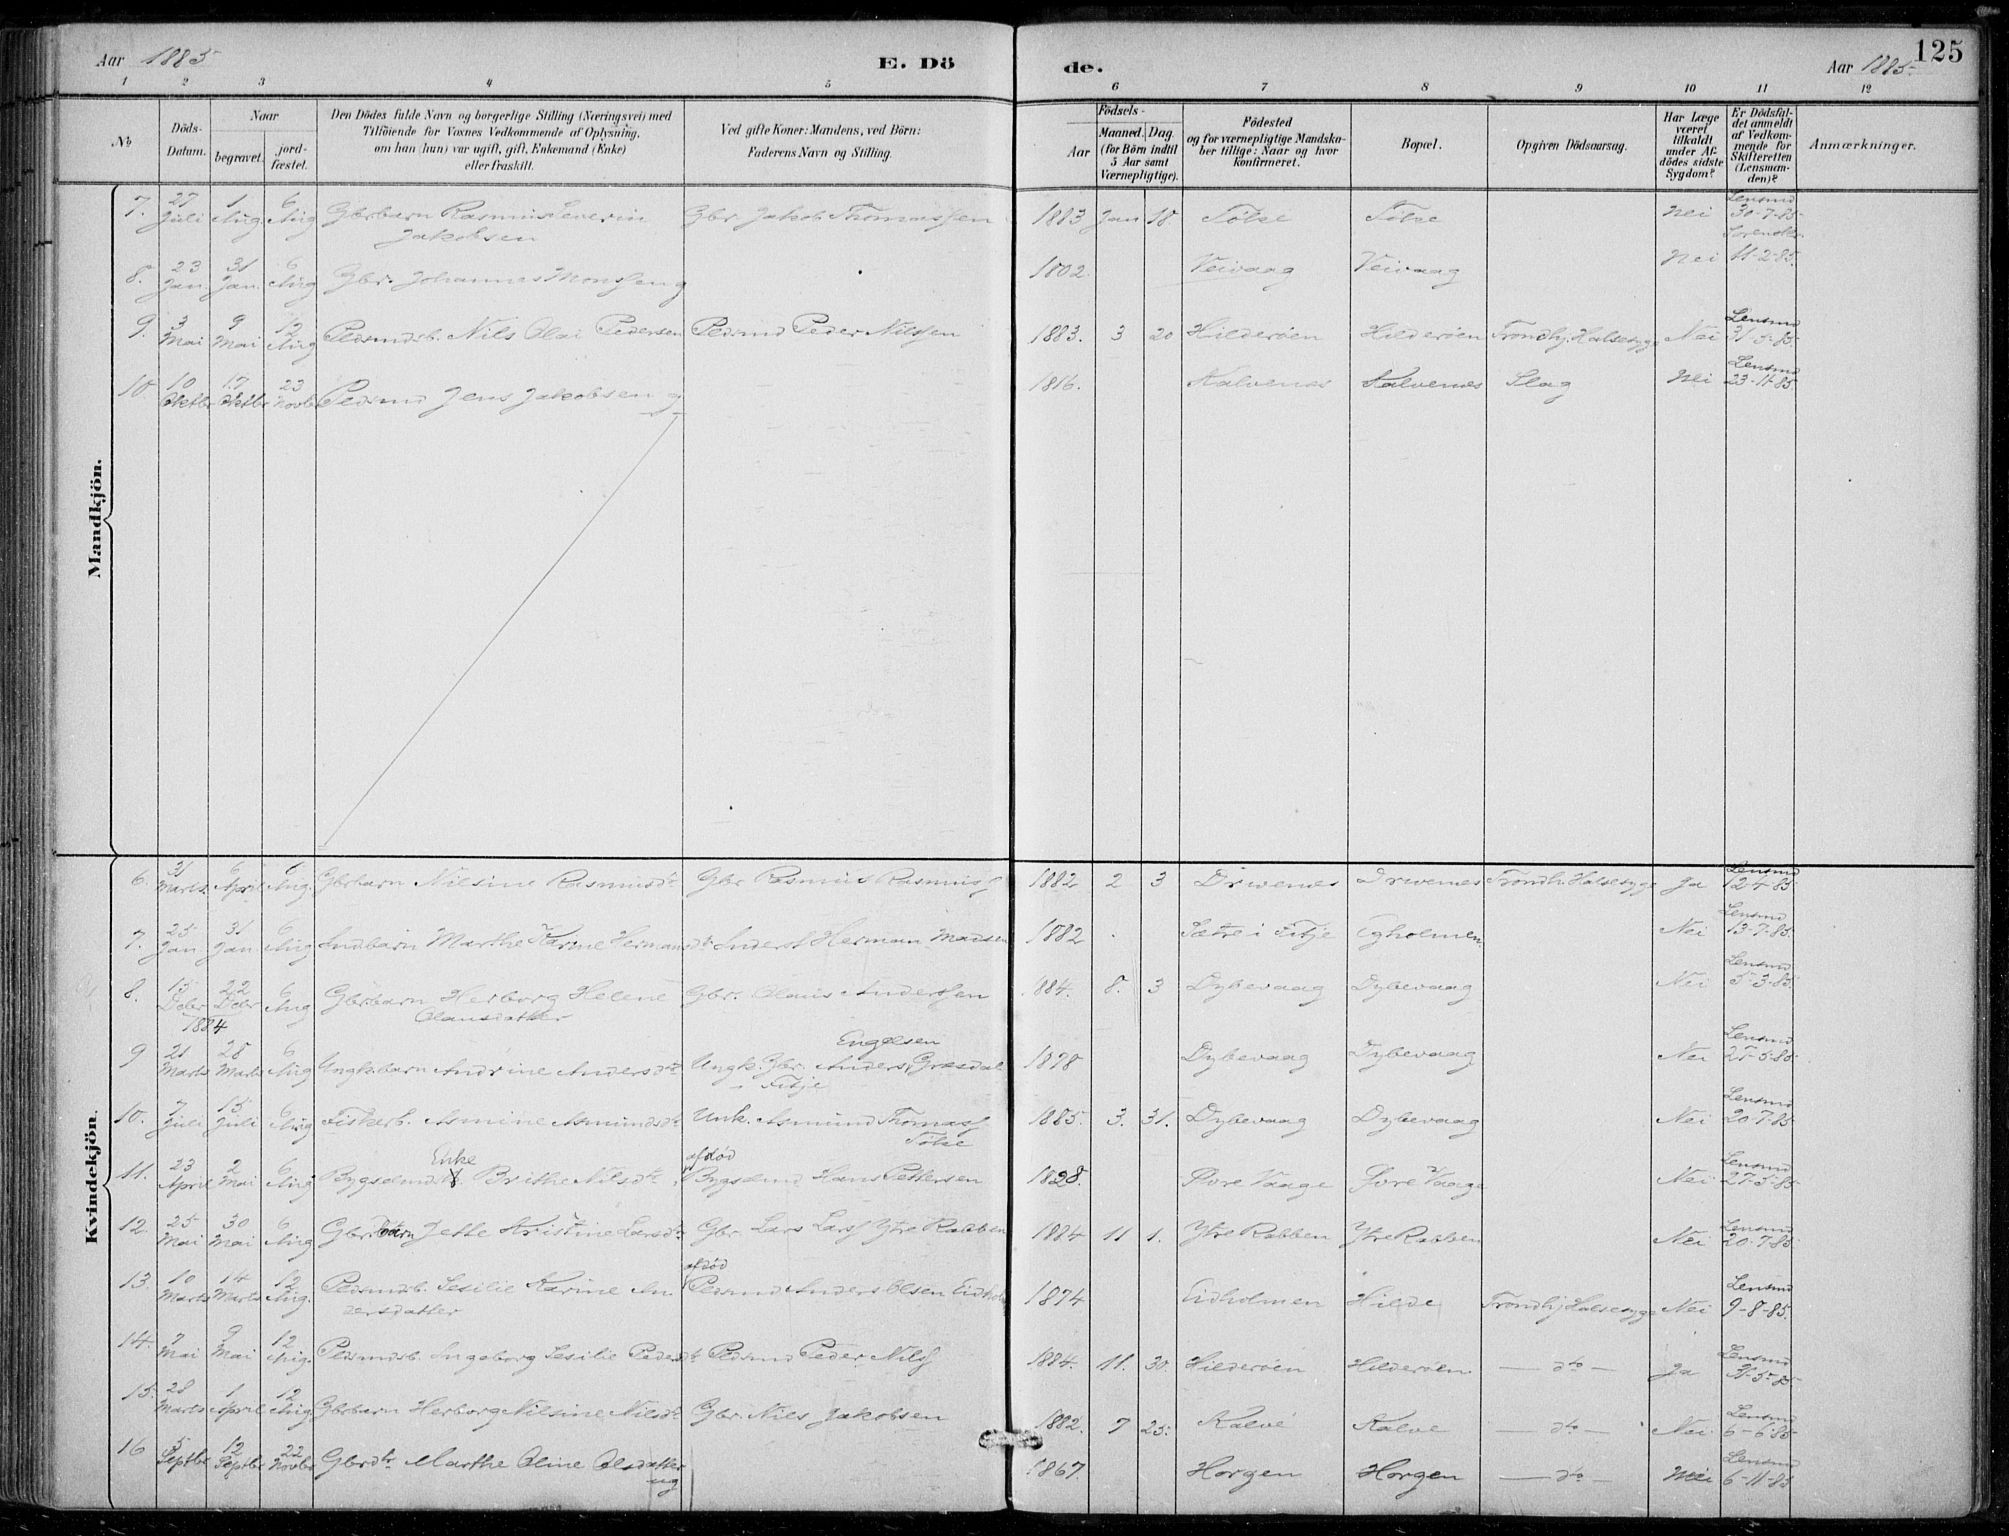 Aar 1885 E. Dö de. Aar 1885 125
1 2 3 4 5 6 7 8 9 10 11 12
No
Döds-Datum.
Naar
begravet.
jord-fæstet.
Den Dödes fulde Navn og borgerlige Stilling (Næringsvei) med
Tilföiende for Voxnes Vedkommende af Oplysning,
om han (hun) var ugift, gift, Enkemand (Enke)
eller fraskilt.
Ved gifte Koner: Mandens, ved Börn:
Faderens Navn og Stilling.
Födsels-
Aar
Maaned. Dag.
(for Börn indtil
5 Aar samt
Værnepligtige).
Födested
og for værnepligtige Mandska-
ber tillige: Naar og hvor
konfirmeret.
Bopæl.
Opgiven Dödsaarsag.
Har Læge
været
tilkaldt
under Af-
dödes sidste
Sygdom?
Er Dödsfal-
det anmeldt
af Vedkom-
mende for
Skifteretten
(Lensman-
den)?
Anmærkninger.
Mandkjön.
7. 27 Juli 1 Aug 6 Aug Gbrbarn Rasmus Severin Jakobsen Gbr. Jakob Thomassen 1883 Jan 18 Tölse Tölse Nei Lensmd 30-7-85
8. 23 Jan. 31 Jan. 6 Aug Gbr. Johannes Monssen g 1802. Veivaag Veivaag Nei Sorenskr. 11-2-85.
9. 3 Mai 9 Mai 12 Aug Pedsmdsb. Nils Olai Pedersen Pedsmd Peder Nilssen 1883. 3 20 Hilderöen Hilderöen Trondhj. Halsesyge Nei Lensmd 31-5-85.
10 10 Oktbr 17 Oktbr 23 Novbr Pedsmd Jens Jakobsen g 1816. Kalvenes Kalvenes Slag Nei Lensmd 23-11-85
Kvindekjön.
6. 31 Marts 6 April 6 Aug. Gbrbarn Nilsine Rasmusdtr Gbr Rasmus Rasmuss 1882 2 3 Drivenes Drivenes Trondh. Halsesyge Ja Lensmd 12-4-85.
7. 25 Jan 31 Jan 6 Aug Indbarn Marthe Karine Hermansdtr Inderst Herman Madsen 1882 Sætre i Fitje Egholmen Nei Lensmd 13-7-85.
8. 15 Decbr 22 Decbr 1884 6 Aug Gbrbarn Herborg Helene Olausdatter Gbr. Olaus Anderssen 1884. 8. 3 Dybevaag Dybevaag Nei Lensmd 5-3-85.
9 21 Marts 28 Marts 6 Aug Ungk.barn Andrine Andersdtr Ungk. Gbr. Anders Engelsen Græsdal Fitje 1878 Dybevaag Dybevaag Nei Lensmd 25-5-85
10. 7 Juli 15 Juli 6 Aug Fiskerb. Asmine Asmundsdtr Unk. Asmund Thomass Tölse 1885. 3. 31. Dybevaag Dybevaag Nei Lensmd 20-7-85
11. 23 April 2 Mai 6 Aug Bygselmds Enke Brithe Nilsdtr afdöd Bygselmd Hans Pettersen 1828. Øvre Vaage Øvre Vaage Nei Lensmd 27-5-85
12. 25 Mai 30 Mai 6 Aug Gbr.barn Jette Kristine Larsdtr Gbr. Lars Larss Ytre Rabben 1884 11 1. Ytre Rabben Ytre Rabben Nei Lensmd 20-7-85
13. 10 Marts 14 Marts 12 Aug. Pedsmdsb. Sesilie Karine Andersdatter afdöd Pedsmd Anders Olsen Eidholm 1874 Eidholmen Hilde Trondhj. Halsesyge Nei Lensmd 9-8-85.
14. 7 Mai 9 Mai 12 Aug. Pedsmdsb. Ingeborg Sesilie Pedersdtr Pedsmd Peder Nilss 1884. 11. 30. Hilderöen Hilderöen — dto — Ja Lensmd 31-5-85
15. 28 Marts 1 April 12 Aug Gbrbarn Herborg Nilsine Nilsdtr Gbr. Nils Jakobsen 1882. 7 25. Kalve Kalve — dto — Nei Lensmd 6-6-85
16 5 Septbr 12 Septbr 22 Novbr Gbrdtr Marthe Oline Olsdatter ug 1867. Horgen Horgen — dto — Nei Lensmd 6-11-85